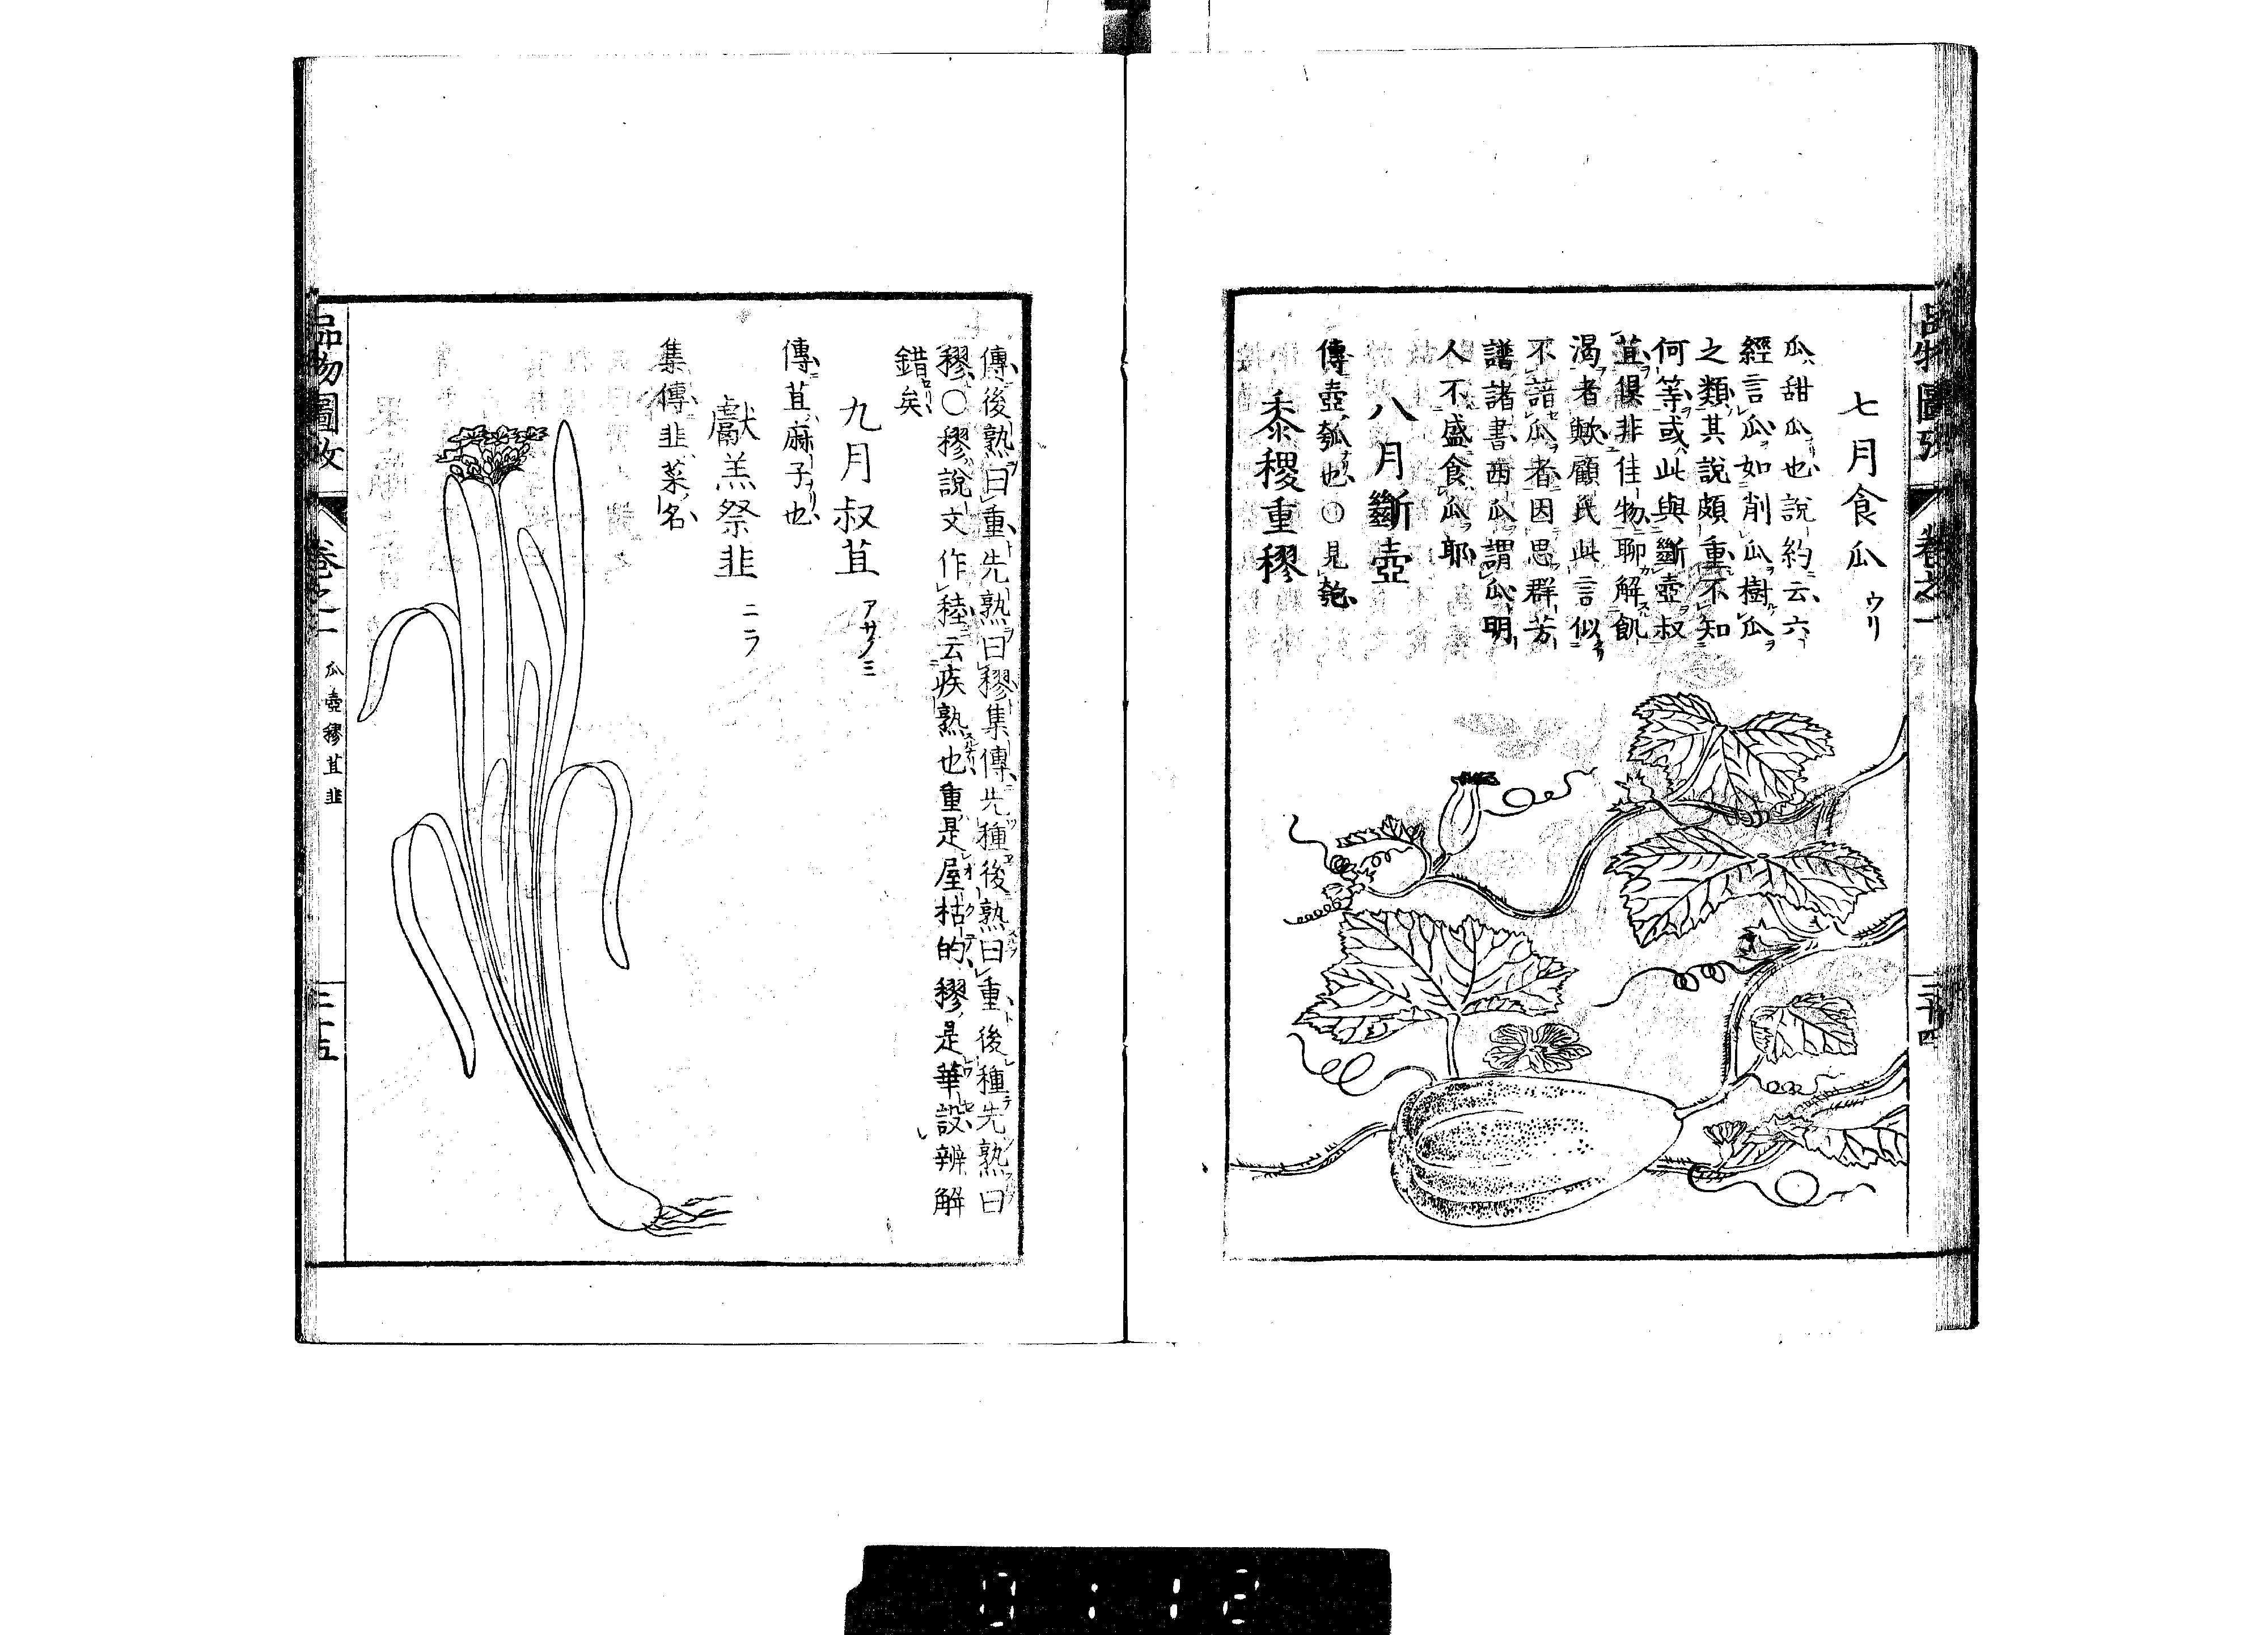 七月食瓜 ウリ
瓜甜瓜也說約云六
經言瓜如削瓜樹瓜
之類其說頗重不知
何等或此與斷壺叔
苴俱非佳物聊解飢
渴者歟顧氏此言似
不諳瓜者因思群芳
譜諸書西瓜謂瓜明
人不盛食瓜耶
八月斷壺
傳壺瓠也○見匏
黍稷重穋
傳後熟曰重先熟曰穋集傳先種後熟曰重後種先熟曰
穋○穋說文作稑云疾熟也重是屋枯的穋是華設辨解
錯矣
九月叔苴 アサノミ
傳苴麻子也
獻羔祭韭 ニラ
集傳韭菜名
品物圖攷 卷之一 瓜壺穋苴韭 三十五
品物圖攷 卷之一 三十四